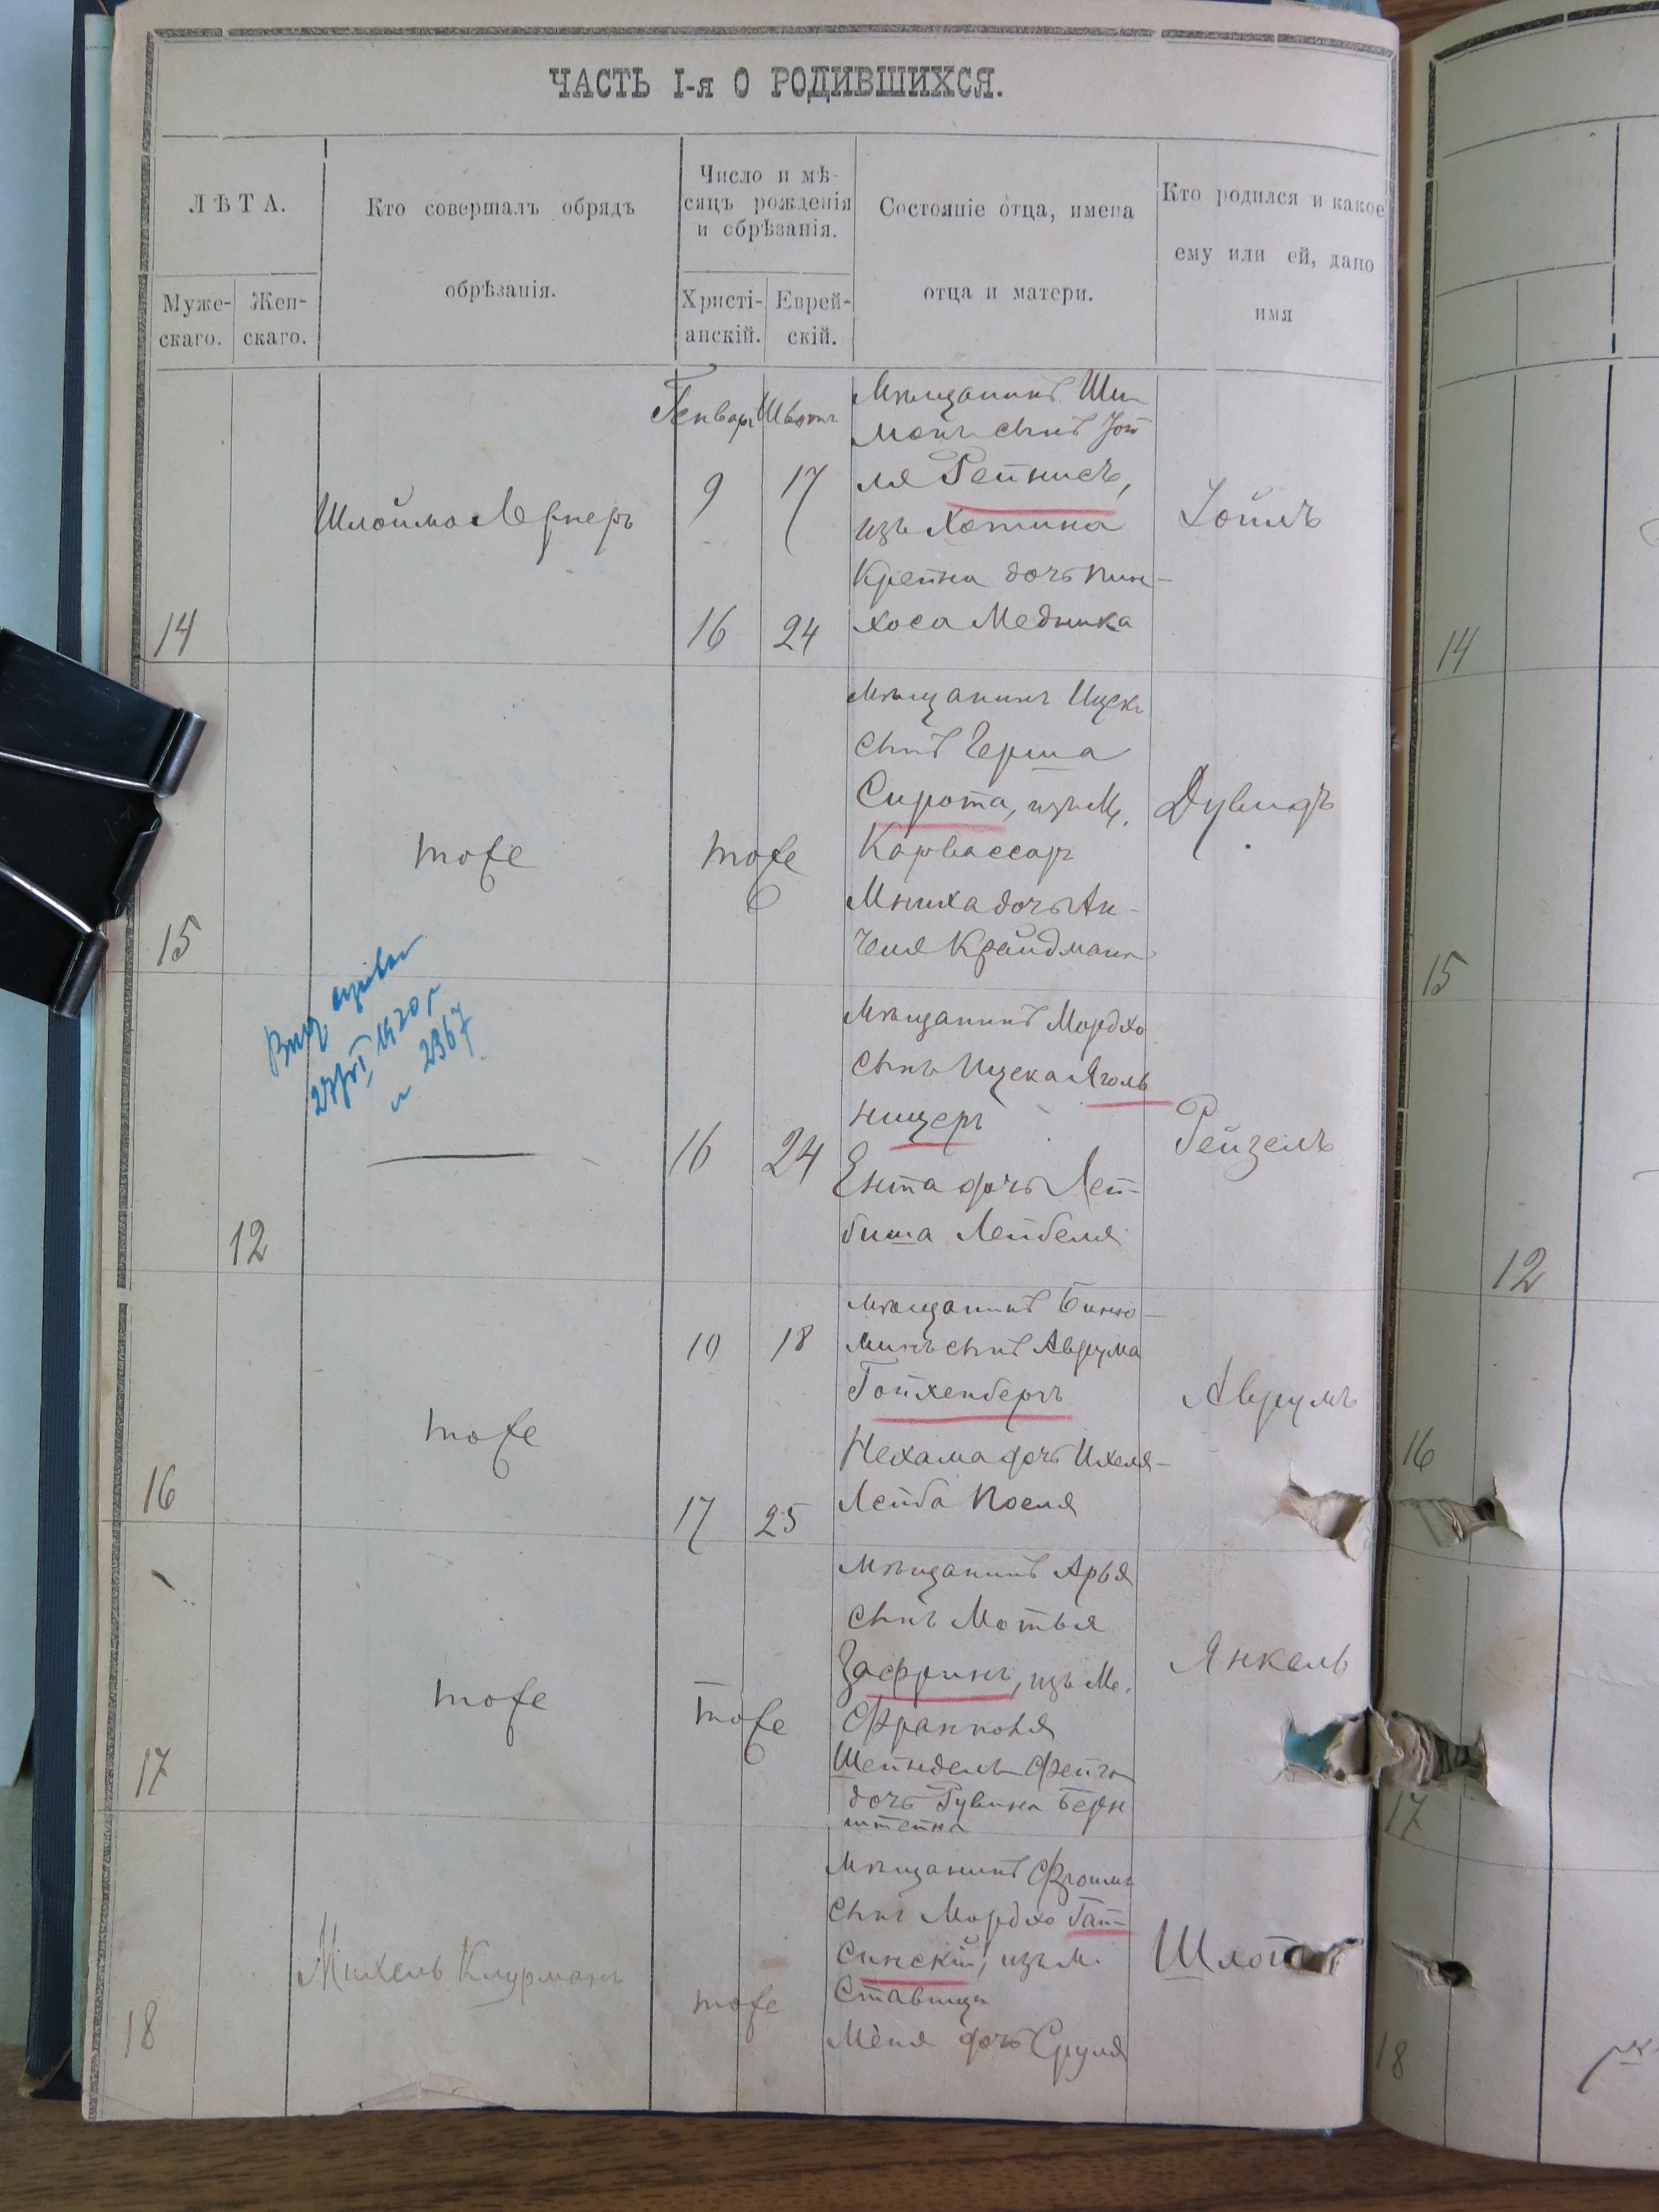 ЧАСТЬ I-я О РОДИВШИХСЯ.
ЛѢТА.
Муже-
скаго.
Жен-
скаго.
Кто совершалъ обрядъ
обрѣзанія.
Число и мѣ-
сяцъ рожденія
и обрѣзанія.
Христі-
анскій.
Еврей-
скій.
Состояніе отца, имена
отца и матери.
Кто родился и какое
ему или ей, дано
имя
14
Шлойма Лернеръ
Генварь Шватъ
9 17
16 24
Мѣщанинъ Ши-
монъ сынъ Іой
ля Рейнисъ,
изъ Хотина
Крейна дочь Пин-
хоса Медника
Іойлъ
15
тоже
тоже
Мѣщанинъ Ицекъ
сынъ Герша
Сирота, изъ М.
Карвассаръ
Мниха дочь Ан-
челя Крайдманъ
Дувидъ
12
2367
16 24
Мѣщанинъ Мордхо
сынъ Ицека Яголь
ницеръ
Ента дочь Лей-
биша Лейбеля
Рейзелъ
16
тоже
10 18
17 25
Мѣщанинъ Биню-
минъ сынъ Аврума
Гойхенбергъ
Нехама дочь Ихеля-
Лейба Поеля
Аврумъ
17
тоже
тоже
Мѣщанинъ Арья
сынъ Мотья
Зафринъ, изъ М.
Франполя
Шейндель Фейга
дочь Рувина Берн
штейна
Янкель
18
Михель Клурманъ
тоже
Мѣщанинъ Фроимъ
сынъ Мордхо Гай-
синскій, изъ м.
Ставище
Меня дочь Сруля
14
15
12
16
17
18